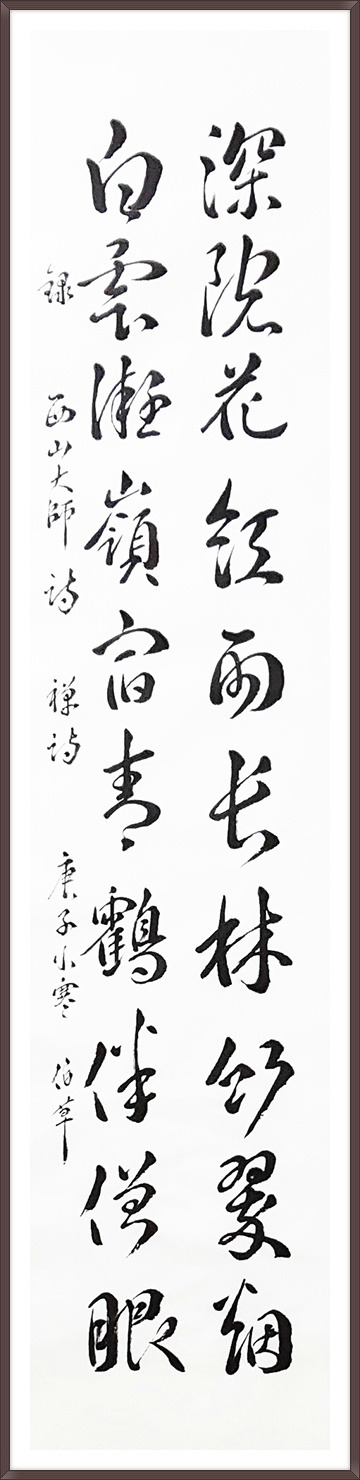 深院花紅雨长林竹翠烟
白雲凝嶺宿青鶴伴僧眠
録 西山大師 詩 禪詩 庚子小寒 草